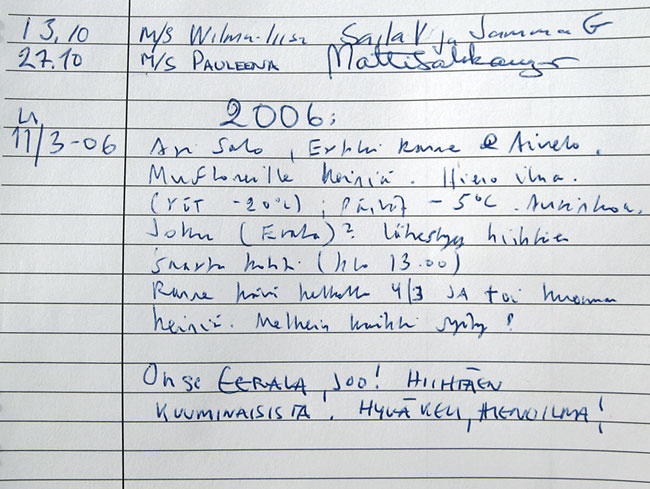 13.10 M/S Wilma-liisa Saila V ja Jamma G
27.10 M/S PAULEENA Matti
2006:
La
11/3-06 Ari Salo, Erkki Ranne @
Mufloneille heiniä. Hieno ilma.
(Yöt -20°C); Päivät -5°C. Aurinkoa.
Joku (Eerala)? lähestyy hiihtäen
saarta kohti (klo 13.00)
Ranne kävi kelkalla 4/3 JA toi kuorman
heiniä. Melkein kaikki syöty!
On se EERALA, JOO! HIIHTÄEN
KUUMINAISISTA. HYVÄ KELI, HIENO ILMA!